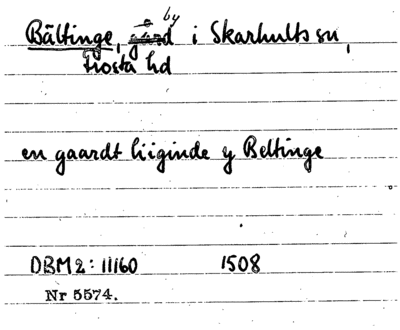 Bältinge, by i Skarhults sn,
Frosta hd
en gaardt liiginde y Beltinge
DBM2: 11160 1508
Nr 5574.